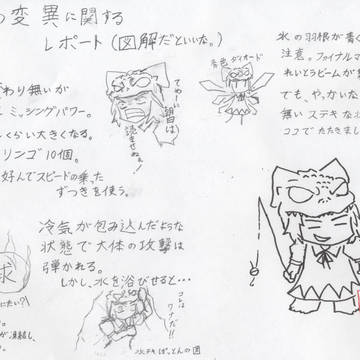 の変異に関する
レポート(図解だといいな。)
わり無いが
ミッシングパワー。
くらい大きくなる。
リンゴ10個。
好んでスピードの乗った
ずつきを使う。
てめーに
明日は
読ませねぇ!
青色ダイオード
氷の羽根が青く
注意。ファイナルマ
れいとうビームが
でも、やっかいな
無いステキな
ココでたたきまし
冷気が包み込んだような
状態で大体の攻撃は
弾かれる。
しかし、水を浴びせると…
コレは
ワナだ!!
球
が凍結し、
水テキぽっとんの図